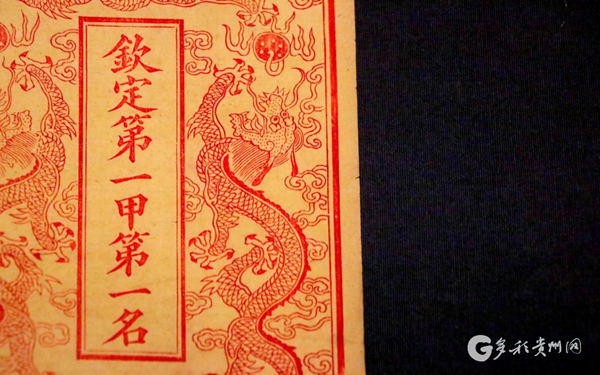 欽定第一甲第一名
多彩贵州网